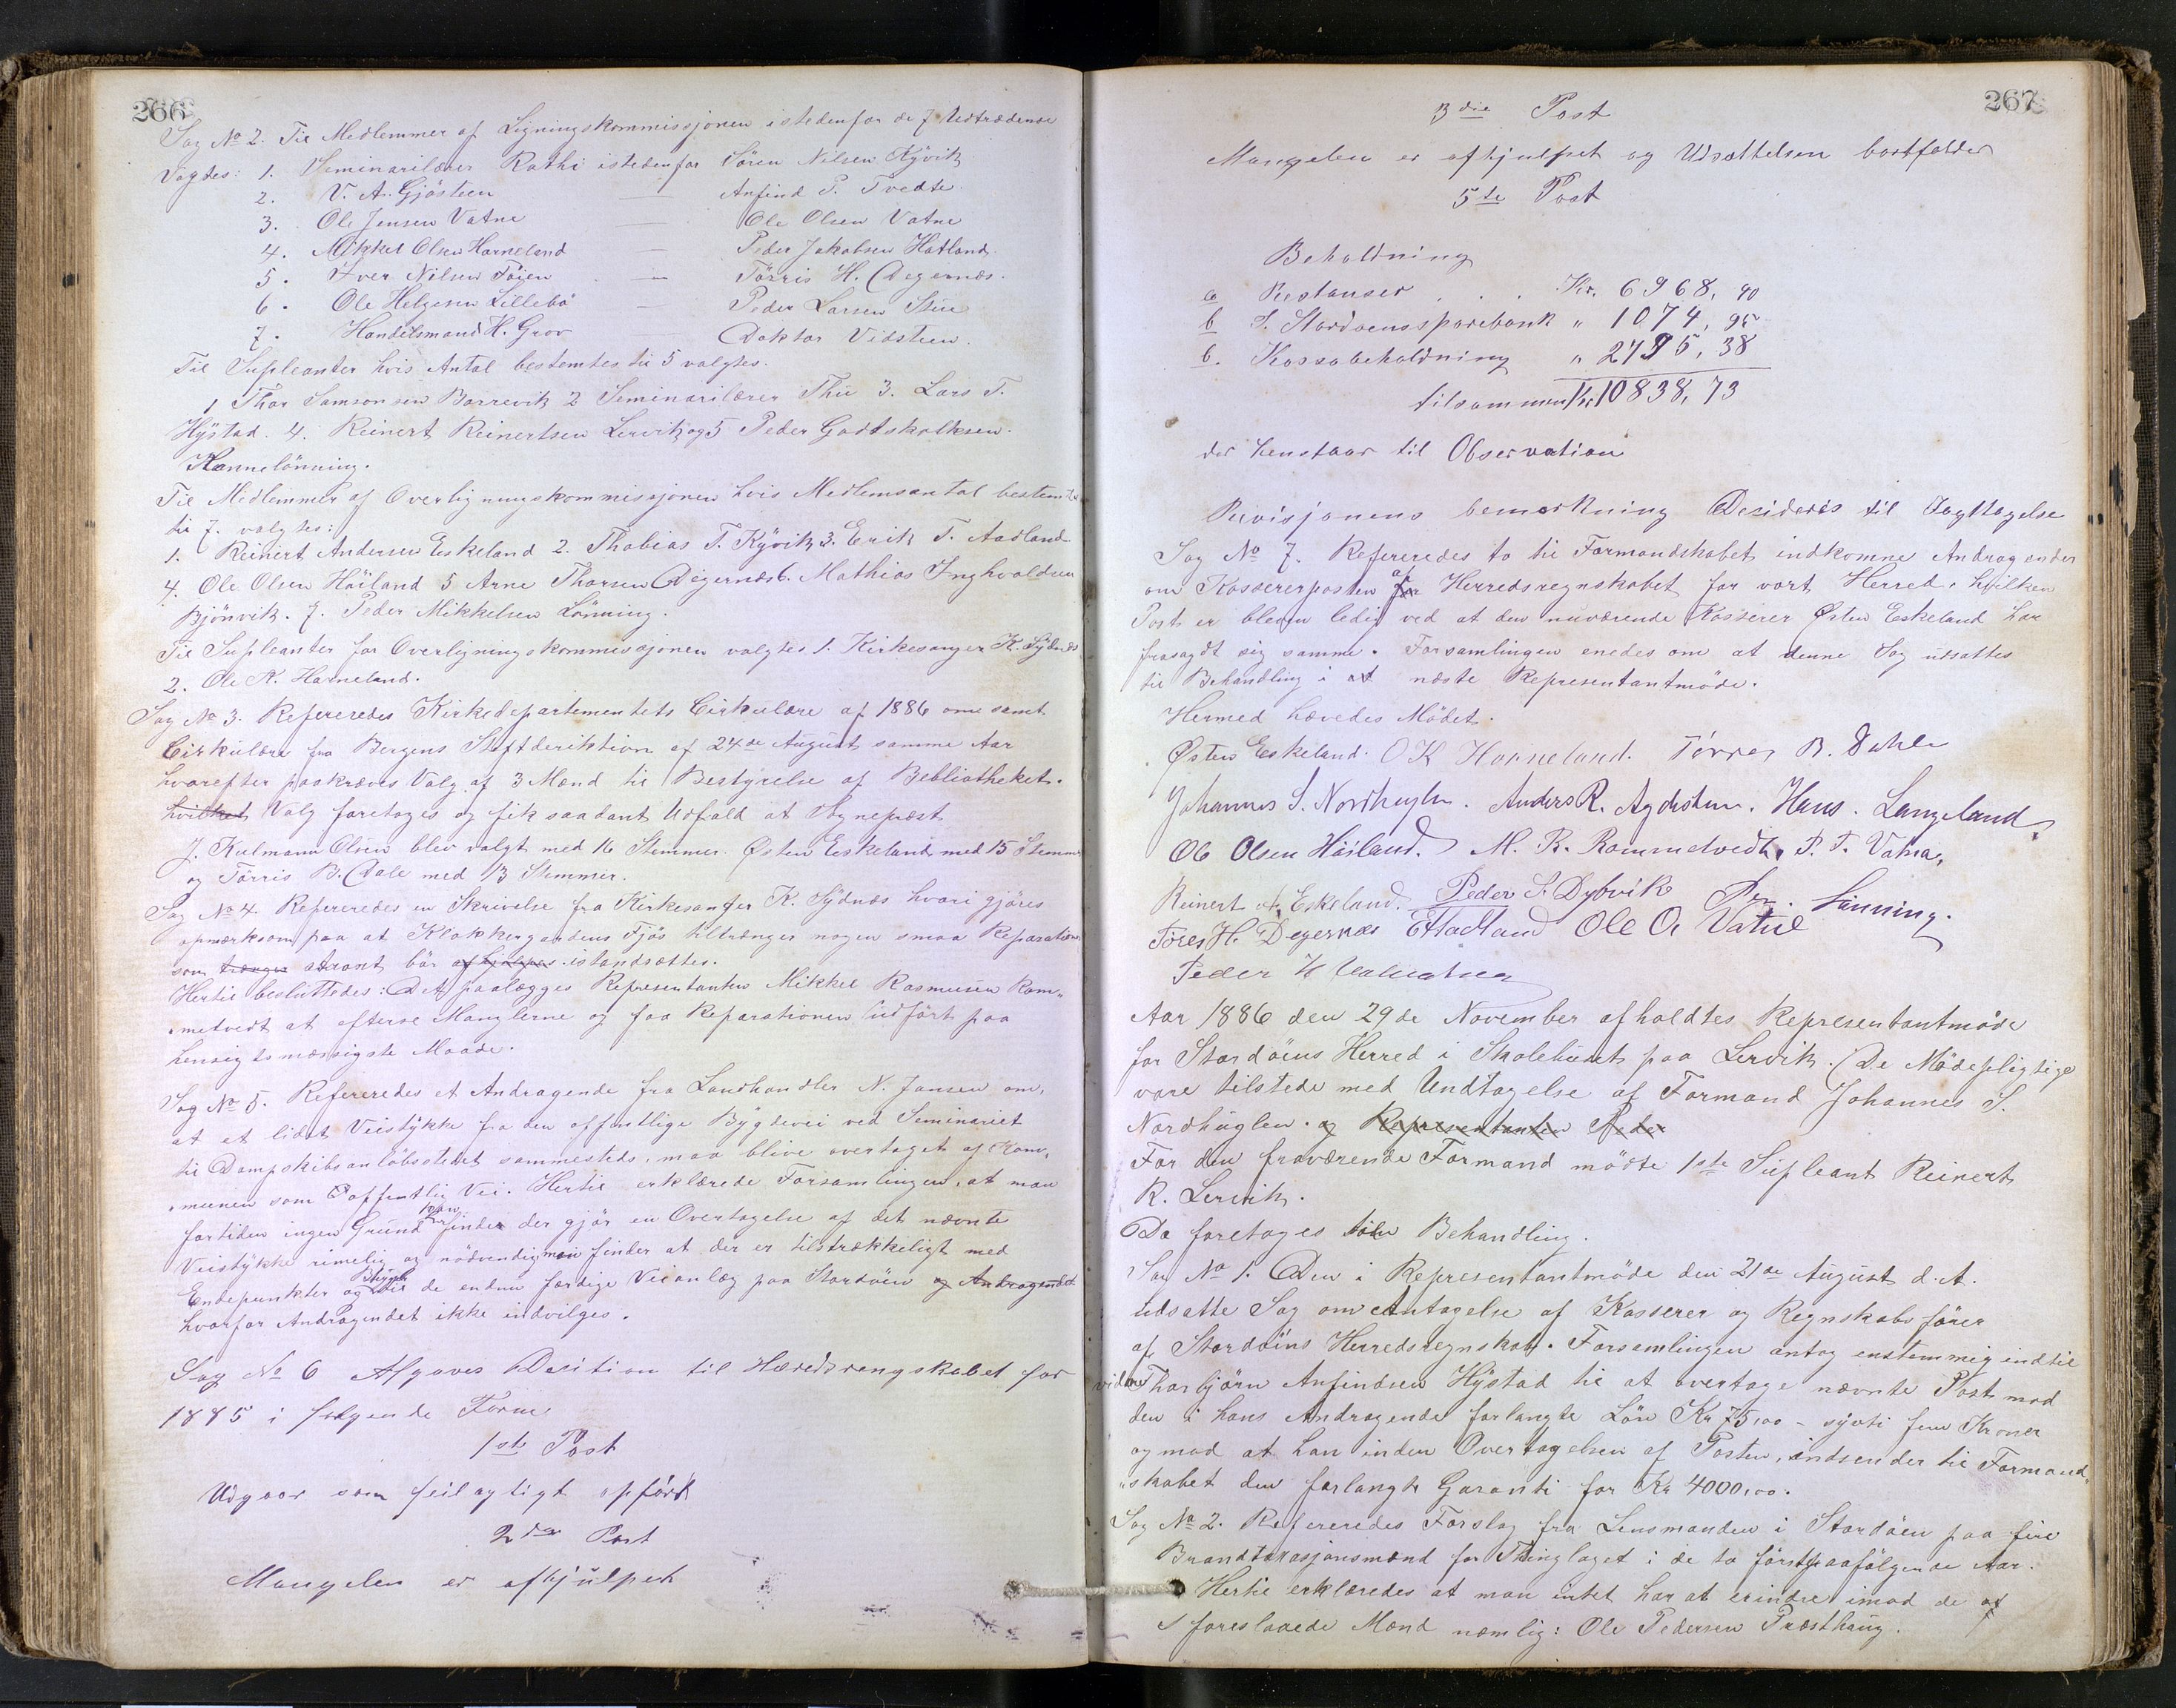 266
Sag No 2. Til Medlemmer af Ligningskommissjonen istedenfor de 7 Udtrædende
Valgdes: 1. Seminarilærer Rathi istedenfor Sören Nilsen Kyvik
2. V. A. Gjösteen — Anfind P. Tvedte.
3. Ole Jensen Vatne — Ole Olsen Vatne
4. Mikkel Olsen Horneland — Peder Jakobsen Hatland.
5. Iver Nilsen Töien — Törris H. Degernæs.
6. Ole Helgesen Lillebö — Peder Larsen Stue
7. Handelsmand H. Grov — Doktor Vidsteen.
Til Supleanter hvis Antal bestemtes til 5 valgtes.
1 Thor Samsonsen Borrevik 2 Seminarilærer Thu 3. Lars T.
Hystad. 4. Reinert Reinertsen Lervik og 5 Peder Godtskalksen
Hannelönning.
Til Medlemmer af Overligningskommissjonen hvis Medlemsantal bestemtes
til 7. valgtes:
1. Reinert Andersen Eskeland 2. Thobias T. Kyvik 3. Erik T. Aadland
4. Ole Olsen Höiland 5 Arne Thorsen Digernæs 6. Mathias Inghvaldsen
Bjönvik. 7. Peder Mikkelsen Lönning.
Til Supleanter for Overligningskommissjonen valgtes 1. Kirkesanger K. Sydnæs
2. Ole K. Horneland.
Sag No 3. Refereredes Kirkedepartementets Cirkulære af 1886 om samt
Cirkulære fra Bergens Stiftderiktion af 24de August samme Aar
hvorefter paakræves Valg af 3 Mænd til Bestyrelse af Bebliotheket.
hvilket Valg foretoges og fik saadant Udfald at Sognepræst
J. Kulmann Olsen blev valgt med 16 Stemmer. Østen Eskeland med 15 Stemmer
og Törris B. Dale med 13 Stemmer.
Sag No 4. Refereredes en Skrivelse fra Kirkesanger K. Sydnæs hvori gjöres
opmærksom paa at Klokkergaardens Fjös tiltrænger nogen smaa Reparation
som trænger straxt bör afhjælpes istandsættes.
Hertil besluttedes: Det paalægges Representanten Mikkel Rasmusen Rom„
„metvedt at efterse Manglerne og faa Reparationen udfört paa
hensigtsmæssigste Maade.
Sag No 5. Refereredes et Andragende fra Landhandler N. Jansen om,
at et lidet Veistykke fra den offentlige Bygdevei ved Seminariet
til Dampskibsanlöbsstedet sammesteds, maa blive overtaget af Kom„
„munen som offentlig Vei. Hertil erklærede Forsamlingen, at man
fortiden ingen Grund finder der gjör en Overtagelse af det nævnte
Veistykke rimelig og nödvendig man finder at der er tilstrækkeligt med
Endepunkter og de endnu færdige Veianlæg paa Stordöen og Andragendet
hvorfor Andragendet ikke indvilges.
Sag No 6 Afgaves Desition til Heredsrengskabet for
1885 i følgende Form
1ste Post
Udgaar som feilagtigt opfört
2den Post
Mangelen er afhjülpet
267
3die Post
Mangelen er afhjulpet og Udsættelsen bortfalder
5te Post
Beholdning
a Restanser . . . Kr. 6968, 40
b S. Stordoens sparebank „ 1074, 95
c. Kassabeholdning „ 2795, 38
tilsammen Kr 10838, 73
der henstaar til Observation
Revisjonens bemærkning Desideres til Iagttagelse
Sag No 7. Refereredes to til Formandskabet indkomne Andragender
om Kassererposten for af Herredsregnskabet for vort Herred, hvilken
Post er bleven ledig ved at den nuværende Kasserer Østen Eskeland har
frasagdt sig samme. Forsamlingen enedes om at denne Sag udsattes
til Behandling i et næste Representantmöde.
Hermed hævedes Mödet.
Østen Eskeland. O K Horneland. Törres B. Dahle
Johannes S. Nordhuglen. Anders R. Agdesten. Hans. Langeland
Ole Olsen Höiland. M. R. Rommetvedt, P. T. Vatna,
Reinert A. Eskeland. Peder S. Dybvik Lönning.
Töres H. Degernæs E T Aadland Ole O. Vatne
Peder
Aar 1886 den 29de November afholdtes Representantmöde
for Stordöens Herred i Skolehuset paa Lervik. De Mödepligtige
vare tilstede med Undtagelse af Formand Johannes S.
Nordhuglen. og Representanten Peder
For den fraværende Formand mödte 1ste Supleant Reinert
R. Lervik.
Da foretoges til Behandling.
Sag No 1. Den i Representantmöde den 21de August d. A.
udsatte Sag om Antagelse af Kasserer og Regnskabsförer
af Stordöens Herredsregnskab. Forsamlingen antog enstemmig indtil
videre Thorbjörn Anfindsen Hystad til at overtage nævnte Post mod
den i hans Andragende forlangte Lön Kr 75,00 - sytti fem Kroner
og mod at han inden Overtagelsen af Posten, indsender til Formand„
„skabet den forlangte Garanti for Kr 4000,00.
Sag No 2. Refereredes Forslag fra Lensmanden i Stordöen paa fire
Brandtaxasjonsmænd for Thinglaget i de to förstpaafölgende Aar.
Hertil erklæredes at man intet har at erindre imod de af
foreslaaede Mænd nemlig: Ole Pedersen Præsthaug.